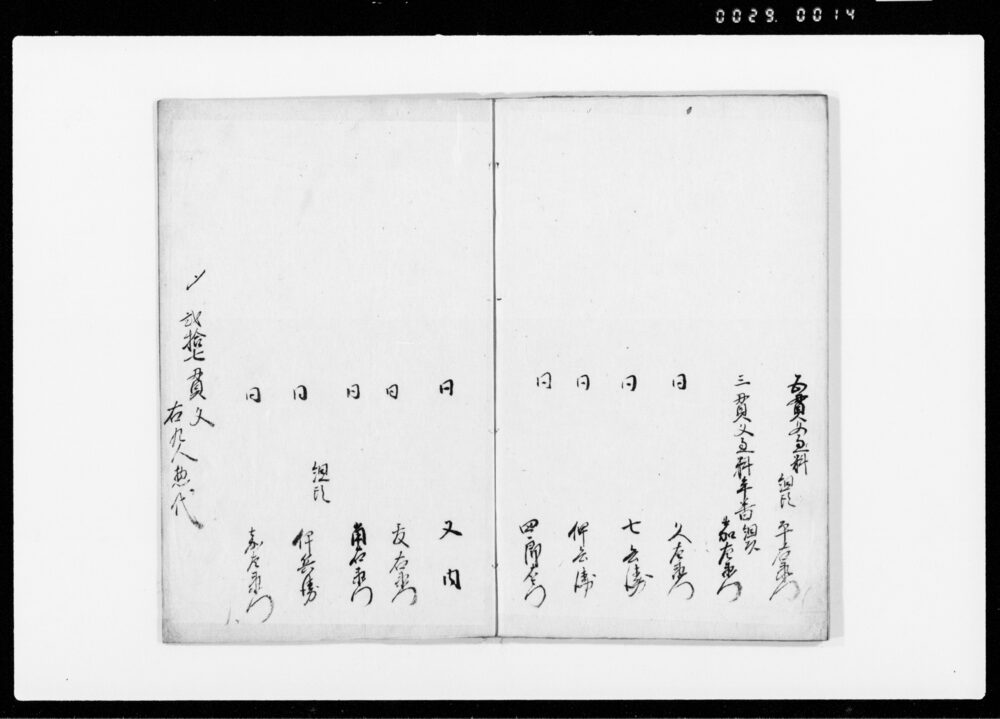 0029. 0014
五貫文過料 組頭 平右衛門
三貫文過料年番組頭 嘉左衛門
同 久左衛門
同 七兵衛
同 仲兵衛
同 四郎左衛門
同 又内
同 友右衛門
同 角右衛門
同 組頭 伴兵衛
同 嘉左衛門
〆 弐拾七貫文
右九人惣代